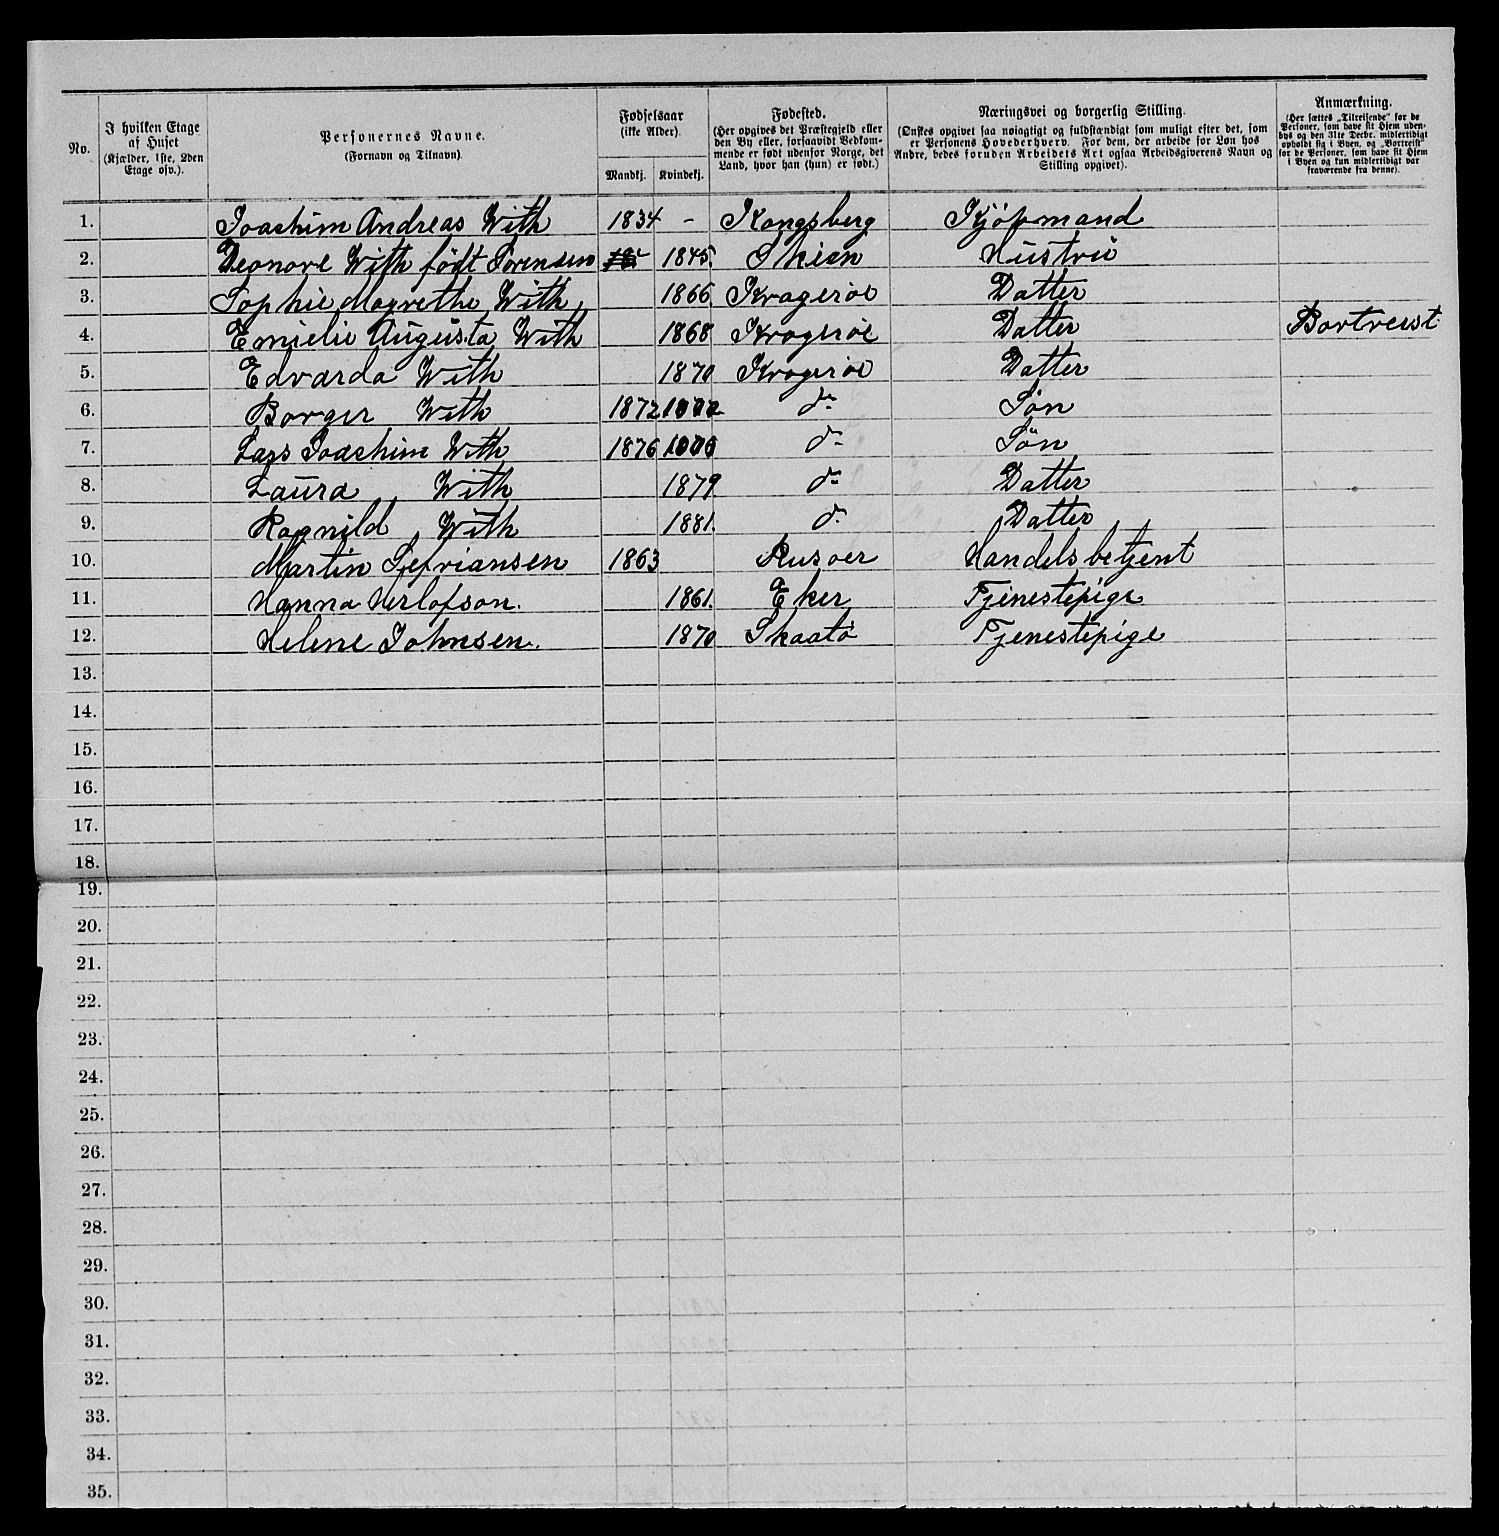 No.
I hvilken Etage af Huset (Kjælder, 1ste, 2den Etage osv.).
Personernes Navne. (Fornavn og Tilnavn).
Fødselsaar (ikke Alder).
Mandkj. Kvindekj.
Fødested. (Her opgives det Præstegjeld eller den By eller, forsaavidt Vedkommende er født udenfor Norge, det Land, hvor han (hun) er født.)
Næringsvei og borgerlig Stilling. (Ønskes opgivet saa nøiagtigt og fuldstændigt som muligt efter det, som er Personens Hovederhverv. For dem, der arbeide for Løn hos Andre, bedes foruden Arbeidets Art ogsaa Arbeidsgiverens Navn og Stilling opgivet).
Anmærkning. (Her sættes „Tilreisende“ for de Personer, som have sit Hjem udenbys og den 31te Decbr. midlertidigt opholdt sig i Byen, og „Bortreist“ for de Personer, som have sit Hjem i Byen og kun midlertidigt var fraværende fra denne).
1. Joachim Andreas With 1834 - Kongsberg Kjøpmand
2. Leonore With født Sørensen 1845. Skien Hustru
3. Sophie Magrethe With 1866. Kragerøe Datter
4. Emielie Augusta With 1868 Kragerøe Datter Bortreist
5. Edvarda With 1870 Kragerøe Datter
6. Borger With 1872 do Søn
7. Lars Joachim With 1876 do Søn
8. Laura With 1879 do Datter
9. Ragnild With 1881. do Datter
10. Martin Sefriansen 1863 Rusøer Handelsbetjent
11. Hanna Herlofson. 1861. Eker Tjenestepige
12. Helene Johnsen. 1870 Skaatø Tjenestepige
13.
14.
15.
16.
17.
18.
19.
20.
21.
22.
23.
24.
25.
26.
27.
28.
29.
30.
31.
32.
33.
34.
35.